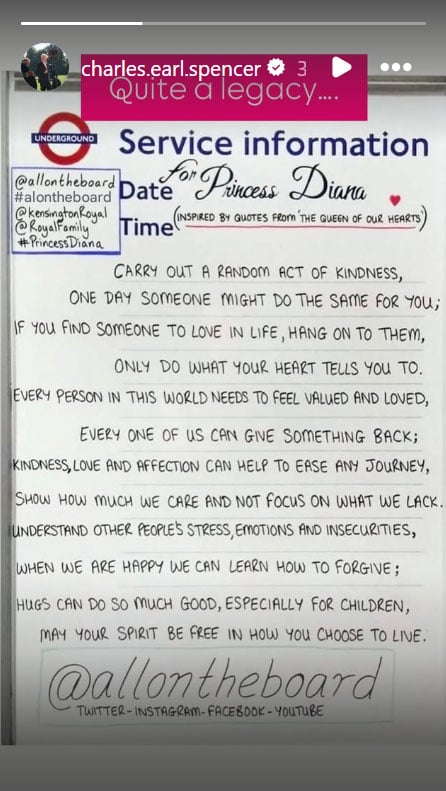 charles.earl.spencer 3
Quite a legacy....
UNDERGROUND
Service information
@allontheboard
#alontheboard
@kensingtonRoyal
@RoyalFamily
#PrincessDiana
Date for Princess Diana
Time (INSPIRED BY QUOTES FROM 'THE QUEEN OF OUR HEARTS')
CARRY OUT A RANDOM ACT OF KINDNESS,
ONE DAY SOMEONE MIGHT DO THE SAME FOR YOU;
IF YOU FIND SOMEONE TO LOVE IN LIFE, HANG ON TO THEM,
ONLY DO WHAT YOUR HEART TELLS YOU TO.
EVERY PERSON IN THIS WORLD NEEDS TO FEEL VALUED AND LOVED,
EVERY ONE OF US CAN GIVE SOMETHING BACK;
KINDNESS, LOVE AND AFFECTION CAN HELP TO EASE ANY JOURNEY,
SHOW HOW MUCH WE CARE AND NOT FOCUS ON WHAT WE LACK.
UNDERSTAND OTHER PEOPLE'S STRESS, EMOTIONS AND INSECURITIES,
WHEN WE ARE HAPPY WE CAN LEARN HOW TO FORGIVE;
HUGS CAN DO SO MUCH GOOD, ESPECIALLY FOR CHILDREN,
MAY YOUR SPIRIT BE FREE IN HOW YOU CHOOSE TO LIVE.
@allontheboard
TWITTER-INSTAGRAM-FACEBOOK-YOUTUBE